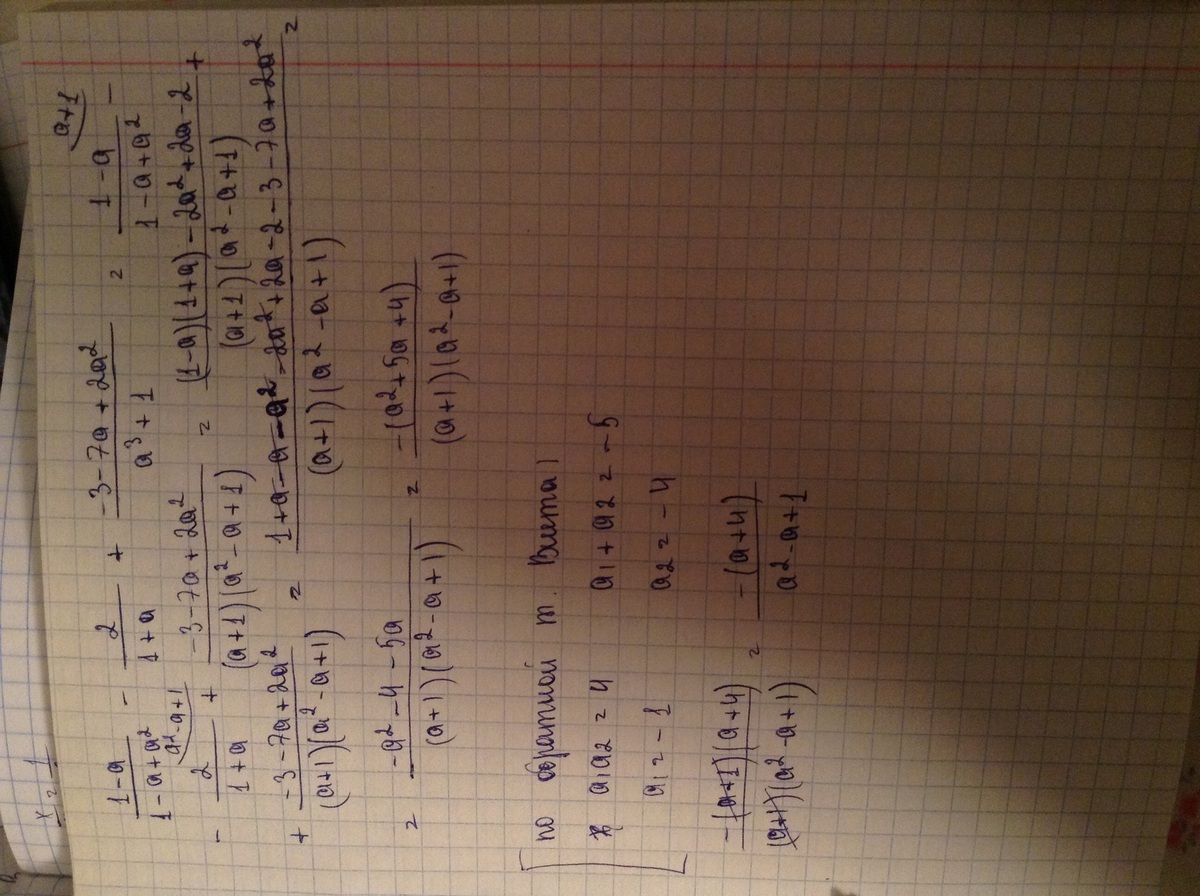 x = 1
(1-a)/(1-a+a²) - 2/(1+a) + (-3-7a+2a²)/(a³+1) = (1-a)/(1-a+a²) \a+1 -
- 2/(1+a) \a²-a+1 + (-3-7a+2a²)/((a+1)(a²-a+1)) = ((1-a)(1+a)-2a²+2a-2)/((a+1)(a²-a+1)) +
+ (-3-7a+2a²)/((a+1)(a²-a+1)) = (1+a-a-a²-2a²+2a-2-3-7a+2a²)/((a+1)(a²-a+1)) =
= (-a²-4-5a)/((a+1)(a²-a+1)) = (-(a²+5a+4))/((a+1)(a²-a+1))
[по обратной т. Виета|
a₁a₂ = 4 a₁+a₂ = -5
a₁ = -1 a₂ = -4
(-(a+1)(a+4))/((a+1)(a²-a+1)) = (-(a+4))/(a²-a+1)